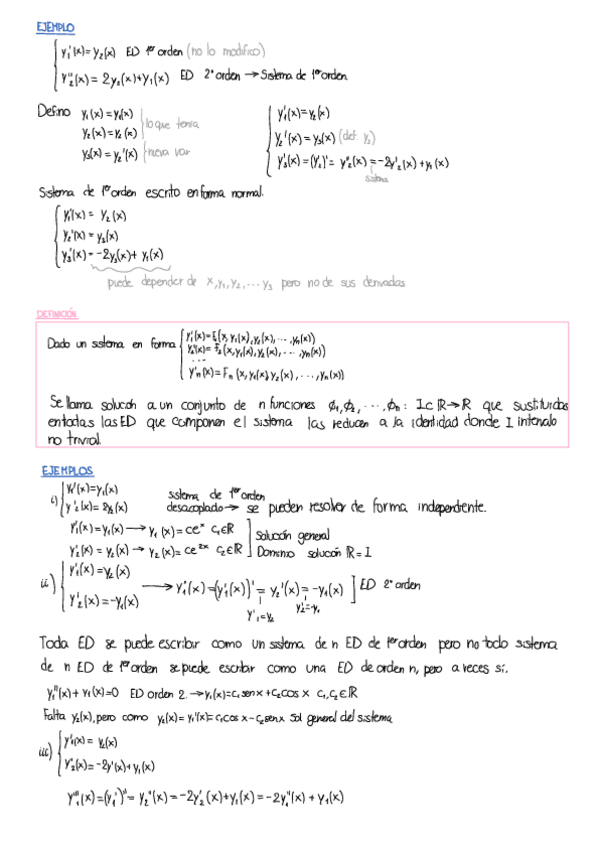 EJEMPLO
y₁'(x)=y₂(x) ED 1er orden (no lo modifico)
y₂''(x) = 2y₂(x)+y₁(x) ED 2º orden → Sistema de 1er orden
Defino y₁(x)=y₁(x)
y₂(x)=y₂(x)
lo que tenía
y₃(x)=y₂'(x) nueva var
y₁'(x)=y₂(x)
y₂'(x)=y₃(x) (def. y₃)
y₃'(x)=(y₂')'= y₂''(x)=-2y₂'(x)+y₁(x)
sistema
Sistema de 1er orden escrito en forma normal.
y₁'(x) = y₂(x)
y₂'(x) = y₃(x)
y₃'(x)=-2y₃(x)+ y₁(x)
puede depender de x,y₁,y₂,...y₃ pero no de sus derivadas
DEFINICIÓN
Dado un sistema en forma
y₁'(x)=F₁(x,y₁(x),y₂(x),...,yₙ(x))
y₂'(x)= F₂(x,y₁(x),y₂(x),...,yₙ(x))
...
y'ₙ(x)=Fₙ(x,y₁(x),y₂(x),...,yₙ(x))
Se llama solución a un conjunto de n funciones ϕ₁,ϕ₂,...,ϕₙ: I⊂ℝ→ℝ que sustituidas
en todas las ED que componen el sistema las reducen a la identidad donde I intervalo
no trivial.
EJEMPLOS
i) y₁'(x)=y₁(x)
y'₂(x)= 2y₂(x)
sistema de 1er orden
desacoplado→ se pueden resolver de forma independiente.
y₁'(x)=y₁(x) → y₁(x)=ceˣ c₁∈ℝ
y₂'(x) = y₂(x) → y₂(x)=ce²ˣ c₂∈ℝ
Solución general
Dominio solución ℝ=I
ii) y₁'(x)=y₂(x)
y₂'(x)=-y₁(x)
→ y₁''(x)=(y₁'(x))' = y₂'(x)=-y₁(x) ED 2º orden
y'₁=y₂
y₂'=-y₁
Toda ED se puede escribir como un sistema de n ED de 1er orden pero no todo sistema
de n ED de 1er orden se puede escribir como una ED de orden n, pero a veces sí.
y₁''(x)+ y₁(x)=0 ED orden 2.→y₁(x)=c₁senx+c₂cosx c₁,c₂∈ℝ
Falta y₂(x), pero como y₂(x)= y₁'(x)=c₁cosx-c₂senx Sol general del sistema
iii) y₁'(x) = y₂(x)
y₂''(x)=-2y'(x)+y₁(x)
y₁'''(x)=(y₁')''= y₂''(x)=-2y₂'(x)+y₁(x)=-2y₁''(x)+ y₁(x)